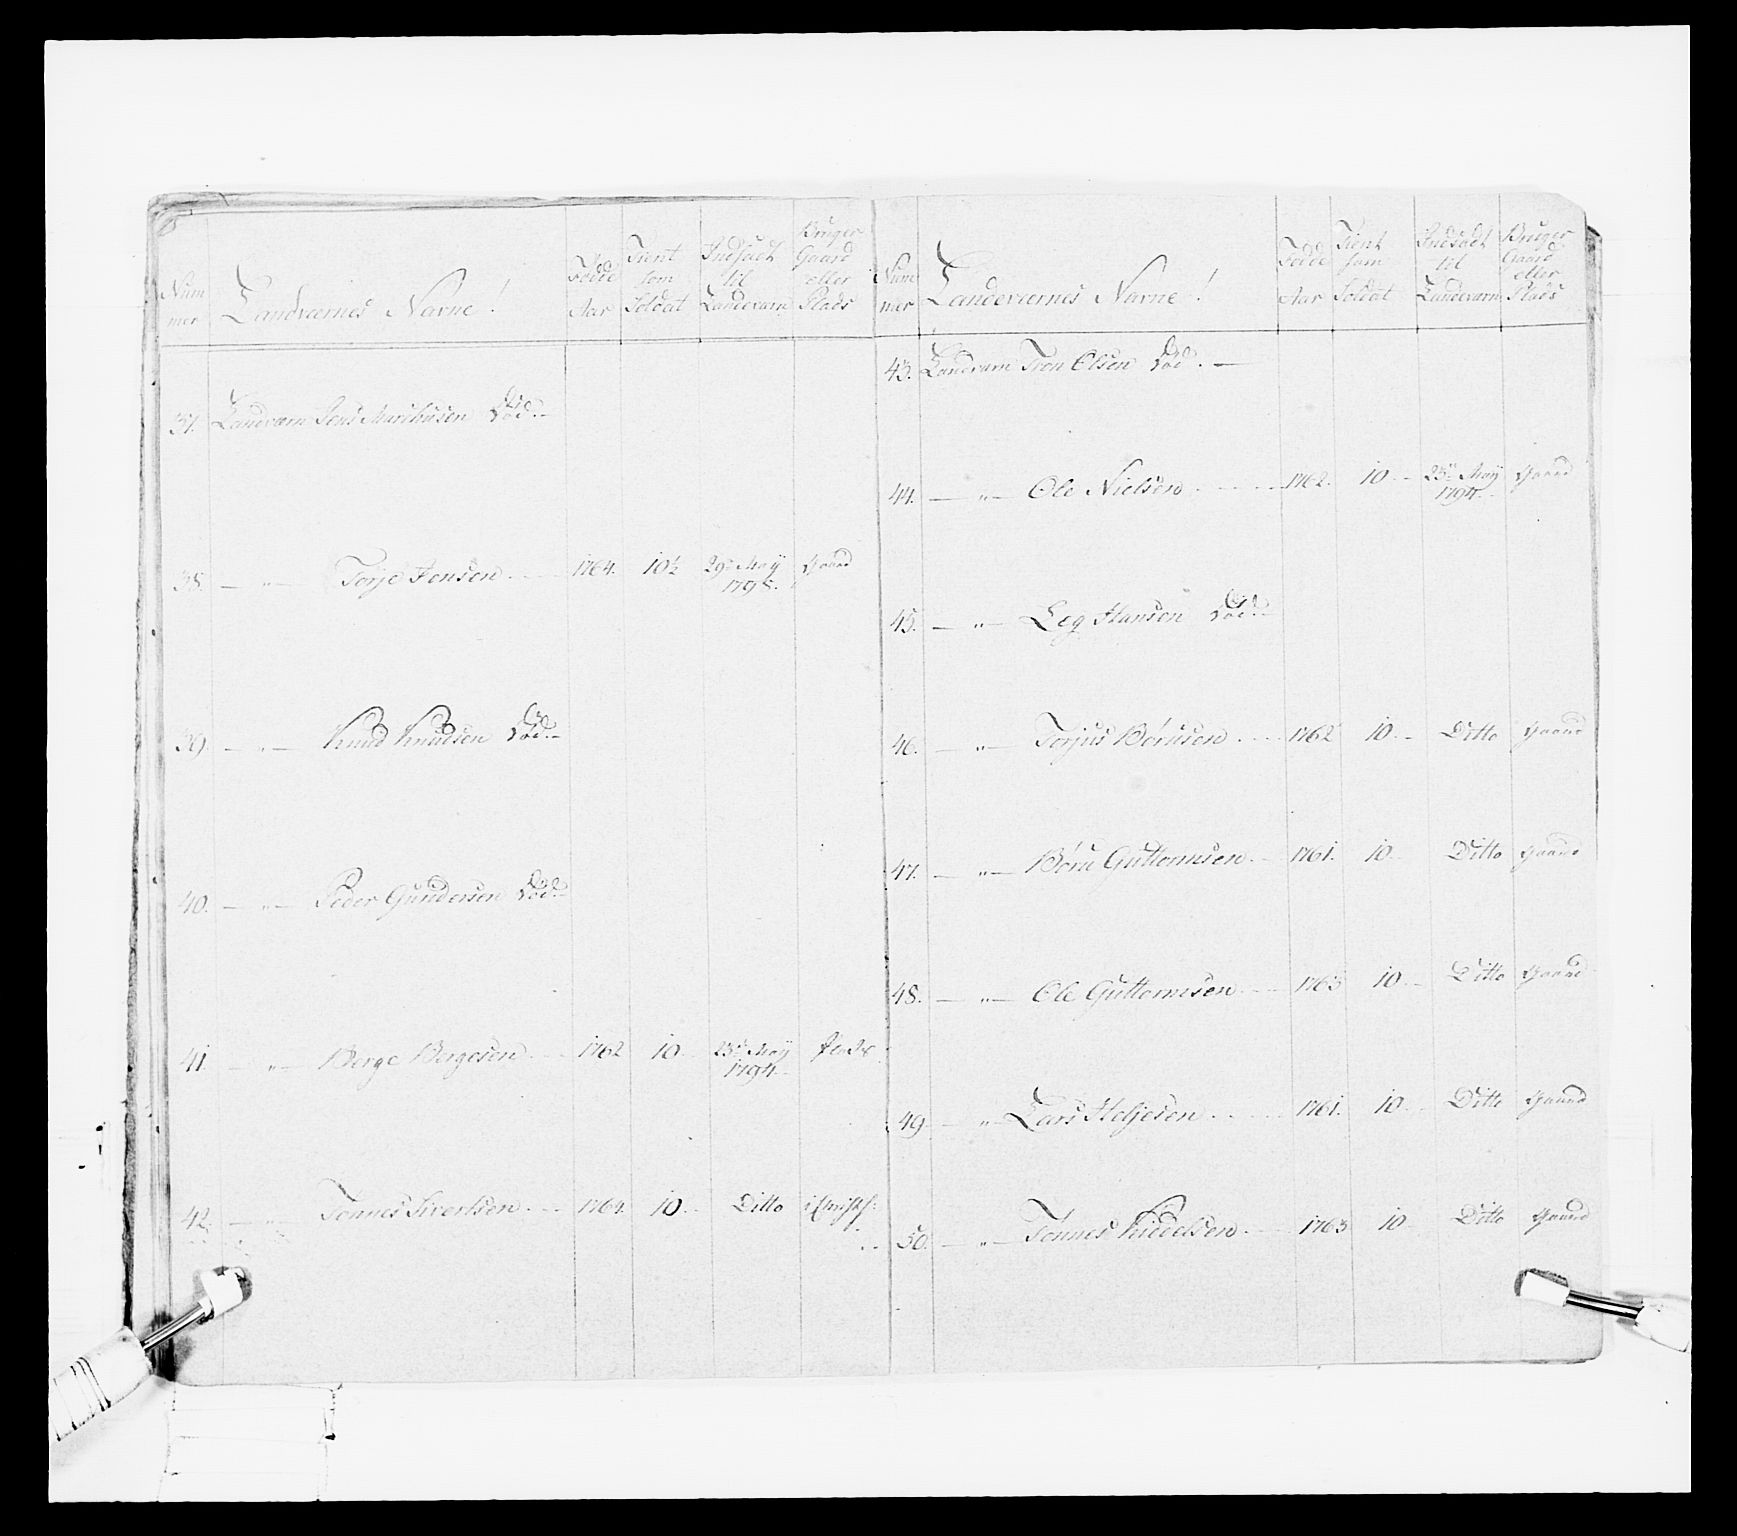 Num
mer
Landværnes Navne!
Fødde
Aar
Tient
som
Soldat
Indsadt
til
Landeværn
Bruger
Gaard
eller
Plads
37. Landværn Jens Marchusen Død.
38. — " — Torje Jensen 1764. 10½ 29de May Gaard
1795.
39. — " — Knud Knudsen Død.
40. — " — Peder Gundersen Død.
41. — " — Berge Bergesen 1762 10 23de May Plads
1794.
42. — " — Tønnes Sivertsen 1764. 10 Ditto
Num
mer
Landeværnes Navne!
Fødde
Aar
Tient
som
Soldat
Indsadt
til
Landeværn
Bruger
Gaard
eller
Plads
43. Landværn Tron Olsen Død.
44. — " — Ole Nielsen 1762. 10 23de May Gaard
1794.
45. — " — Leg Hansen Død.
46. — " — Torjus Børusen 1762 10 Ditto Gaard
47. — " — Børu Guttormsen 1761. 10 Ditto Gaard
48. — " — Ole Guttormsen 1763 10 Ditto Gaard
49. — " — Lars Heljesen 1761. 10 Ditto Gaard
50. — " — Tønnes Kiedelsen 1763 10 Ditto Gaard